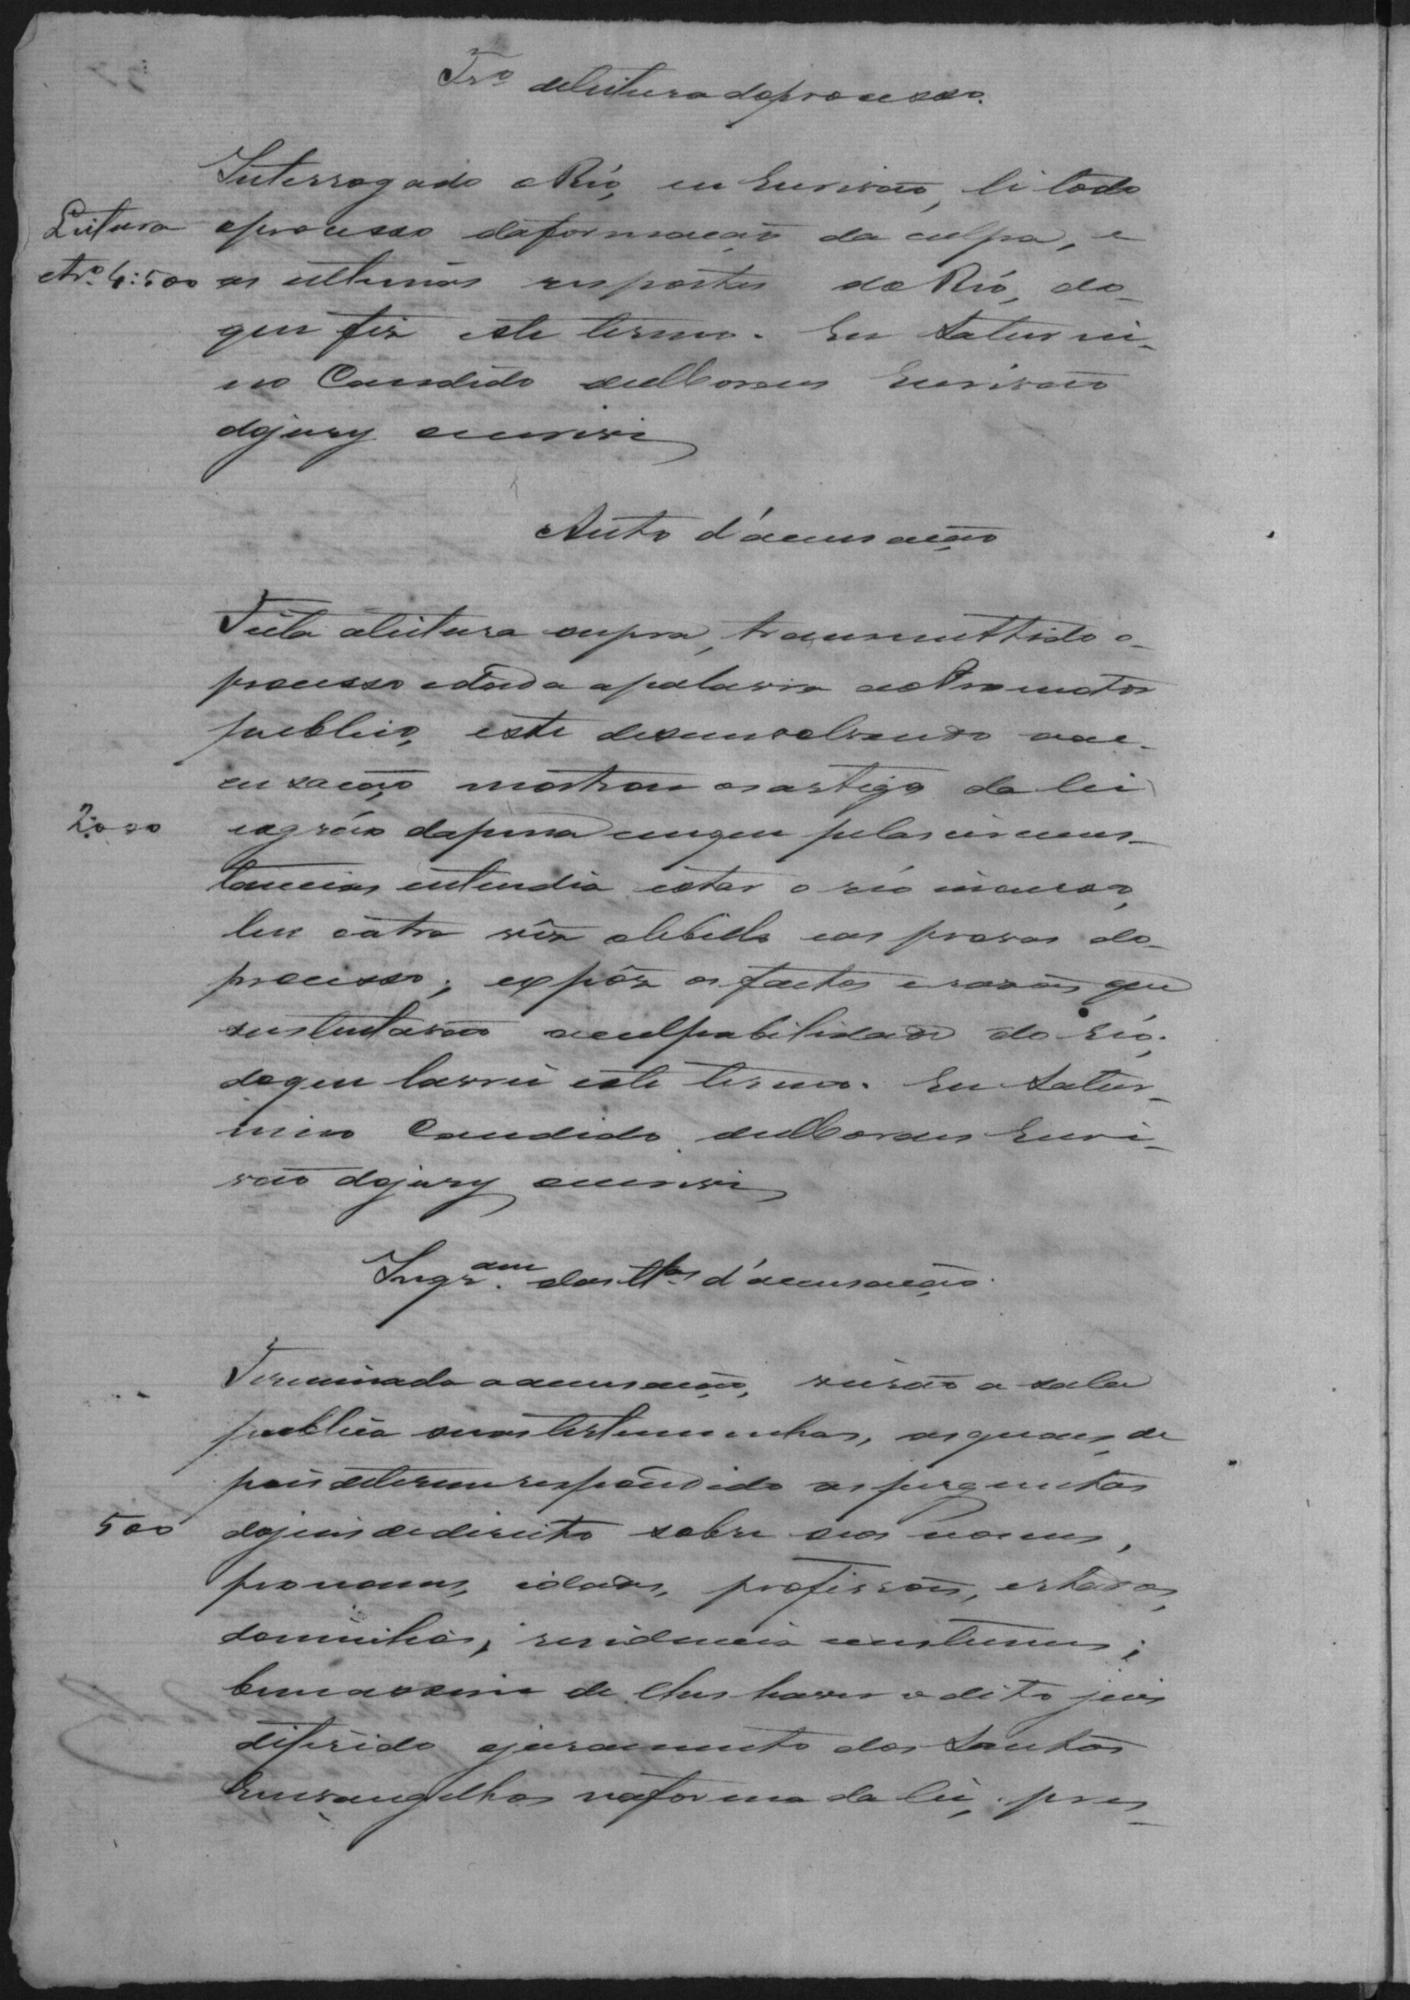 Tr.º de leitura do processo.
Interrogado o Réo, eu Escrivão, li todo
Leitura
o processo da formação da culpa, e
e tr.º 4:500
as ultimas respostas do Réo, do
que fiz este termo. Eu Saturni-
no Candido de Moraes Escrivão
do jury escrivi
Auto d'accusação
Feita a leitura supra, transmittido o
processo e dada a palavra ao Promotor
publico, este desenvolvendo a ac-
cusação mostrou o artigo da lei
2:000
e o gráo da pena em que pelas circums-
tancias entendia estar o réo incurso,
leu outra vêz o libello e as provas do
processo; expôz os factos e rasões que
sustentavão a culpabilidade do réo;
do que lavrei este termo. Eu Satur-
nino Candido de Moraes Escri-
vão do jury escrivi
Ingr.am das tt.as d'accusação.
Terminada a accusação, vierão a sala
publica as testemunhas, as quaes, de
pois de terem respondido as perguntas
500
do juis de direito sobre seos nomes,
pronomes, idades, profissões, estados,
domicilios, residencia e custumes;
bem assim de lhes haver o dito juis
diferido o juramento dos Santos
Envangelhos na forma da lei, pres-